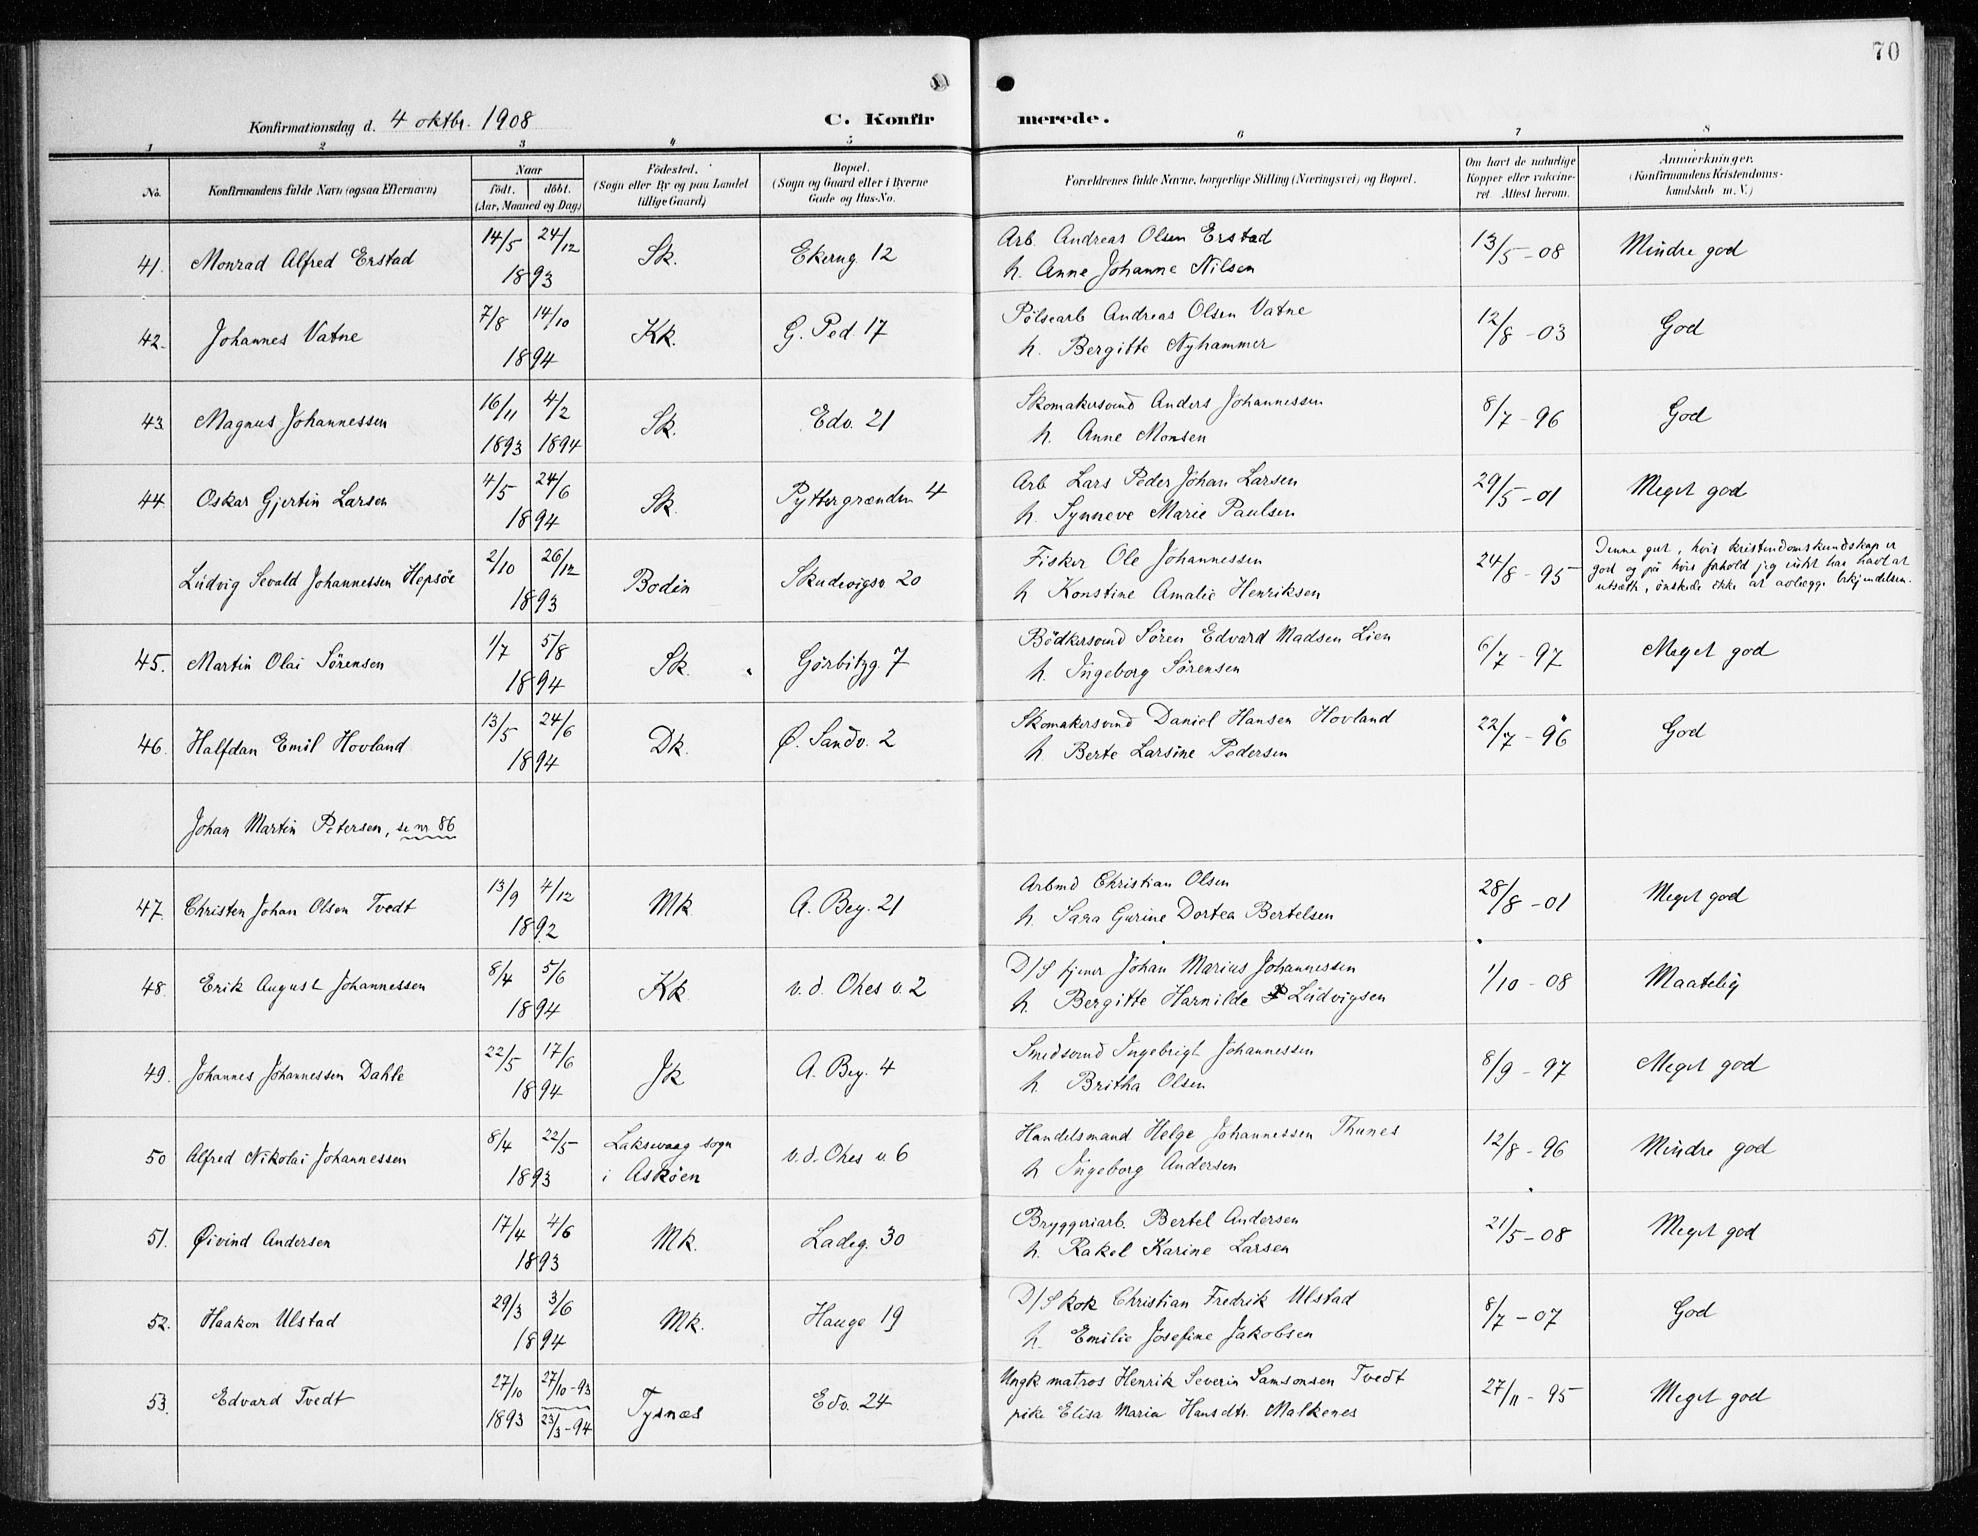 70
Konfirmationsdag d. 4 oktbr. 1908
C. Konfirmerede.
1 2 3 4 5 6 7 8
No.
Konfirmandens fulde Navn (ogsaa Efternavn)
Naar
födt. döbt.
(Aar, Maaned og Dag)
Födested.
(Sogn eller By og paa Landet
tillige Gaard)
Bopæl.
(Sogn og Gaard eller i Byerne
Gade og Hus-No.
Forældrenes fulde Navne, borgerlige Stilling (Næringsvei) og Bopæl.
Om havt de naturlige
Kopper eller vakcine-
ret. Attest herom.
Anmærkninger.
(Konfirmandens Kristendoms-
kundskab m. V.)
41. Monrad Alfred Erstad 14/5 24/12 1893 Sk. Ekerng. 12 Arb. Andreas Olsen Erstad
h. Anne Johanne Nilsen 13/5-08 Mindre god
42. Johannes Vatne 7/8 14/10 1894 Kk. G. Ped 17 Pölsearb Andreas Olsen Vatne
h. Bergitte Nyhammer 12/8-03 God
43. Magnus Johannessen 16/11 1893 4/2 1894 Sk. Edv. 21 Skomakersvend Anders Johannessen
h. Anne Monsen 8/7-96 God
44. Oskar Gjertin Larsen 4/5 24/6 1894 Sk. Pyttergrænden 4 Arb Lars Peder Johan Larsen
h. Synneve Marie Paulsen 29/5-01 Meget god
Ludvig Sevald Johannessen Hepsöe 2/10 26/12 1893 Bodin Skudevigsv 20 Fisker Ole Johannessen
h Konstine Amalie Henriksen 24/8-95 Denne gut, hvis kristendomskundskap er
god og på hvis forhold jeg intet har havt at
utsætte, önskede ikke at avlægge bekjendelsen.
45. Martin Olai Sörensen 1/7 5/8 1894 Sk. Görbitzg. 7 Bödkersvend Sören Edvard Madsen Lien
h. Ingeborg Sörensen 6/7-97 Meget god
46. Halfdan Emil Hovland 13/5 24/6 1894 Dk. Ø. Sandv. 2 Skomakersvend Daniel Hansen Hovland
h. Berte Larsine Pedersen 22/7-96 God
Johan Martin Petersen, se nr. 86
47. Christen Johan Olsen Tvedt 13/9 4/12 1892 Mk. A. Bey. 21 Arbmd Christian Olsen
h. Sara Gurine Dortea Bertelsen 28/8-01 Meget god
48. Erik August Johannessen 8/4 5/6 1894 Kk. v. d. Ohes v. 2 D/S fyrer Johan Marius Johannessen
h. Bergitte Harnilde Ludvigsen 1/10-08 Maatelig
49. Johannes Johannessen Dahle 22/5 17/6 1894 Jk A. Bey. 4 Smedsvend Ingebrigt Johannessen
h Britha Olsen 8/9-97 Meget god
50 Alfred Nikolai Johannessen 8/4 22/5 1893 Laksevaag sogn
i Asköen v. d. Ohes v. 6 Handelsmand Helge Johannessen Thunes
h Ingeborg Andersen 12/8-96 Mindre god
51. Øivind Andersen 17/4 4/6 1893 Mk. Ladeg. 30 Bryggeriarb. Bertel Andersen
h. Rakel Karine Larsen 21/5-08 Meget god
52. Haakon Ulstad 29/3 3/6 1894 Mk. Hauge 19 D/S kok Christian Fredrik Ulstad
h. Emilie Josefine Jakobsen 8/7-07 God
53. Edvard Tvedt 27/10 1893 27/10-93 23/3-94 Tysnæs Edv. 24 Ungk. matros Henrik Severin Samsonsen Tvedt
pike Elisa Maria Hansdtr. Malkenes 27/11-95 Meget god